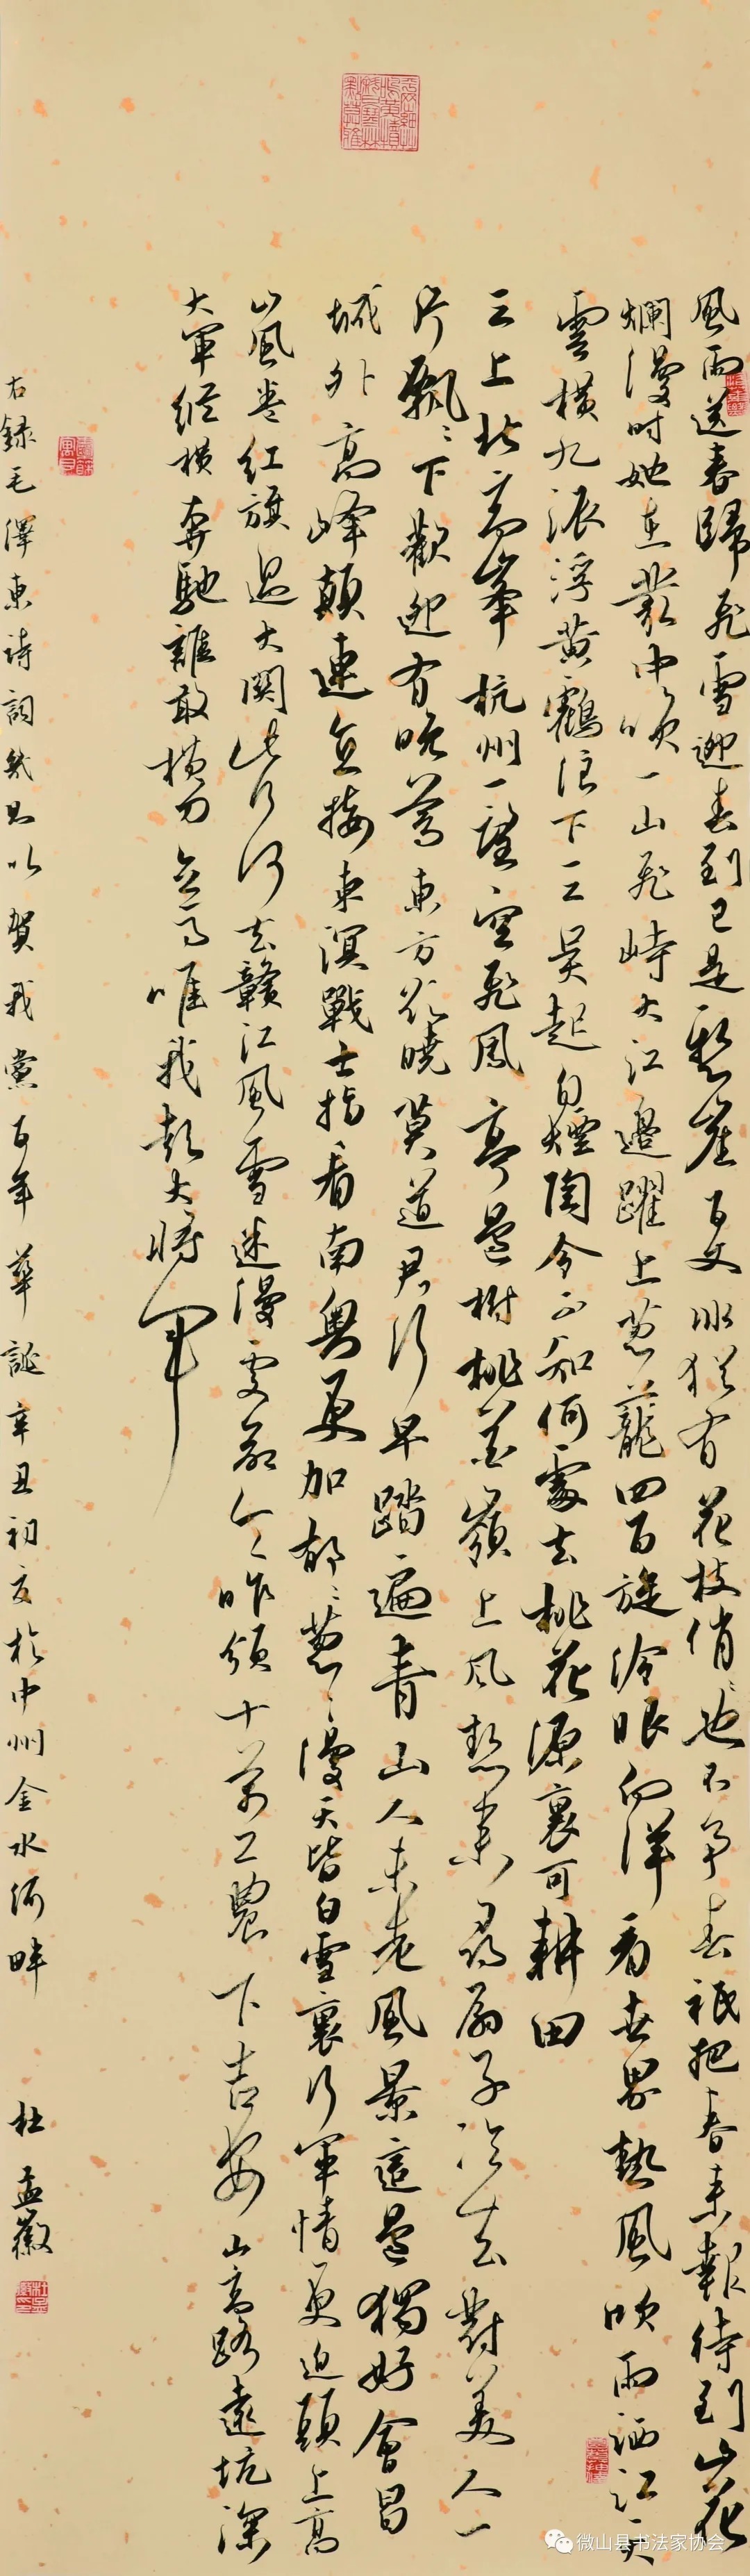 風雨送春歸飛雪迎春到已是懸崖百丈冰猶有花枝俏俏也不争春祇把春来報待到山花
爛漫時她在叢中笑一山飛峙大江邉躍上葱蘢四百旋冷眼向洋看世界熱風吹雨洒江天
雲横九派浮黄鶴浪下三吴起白煙陶令不知何處去桃花源裏可耕田
三上北高峯杭州一望空飛鳳亭邉樹桃花嶺上風熱来尋扇子冷去對美人一
片飘〻下歡迎有晚鶯東方欲曉莫道君行早踏遍青山人未老風景這邉獨好會昌
城外高峰顛連直接東溟戰士指看南粤更加郁〻葱〻漫天皆白雪裏行軍情更迫頭上高
山風卷紅旗過大関此行何去贛江風雪迷漫處命令昨頒十萬工農下吉安山高路遠坑深
大軍縱横奔馳誰敢横刀立馬唯我彭大將軍
右録毛澤東詩詞幾首以賀我黨百年華誕辛丑初夏於中州金水河畔 杜孟徽
微山县书法家协会